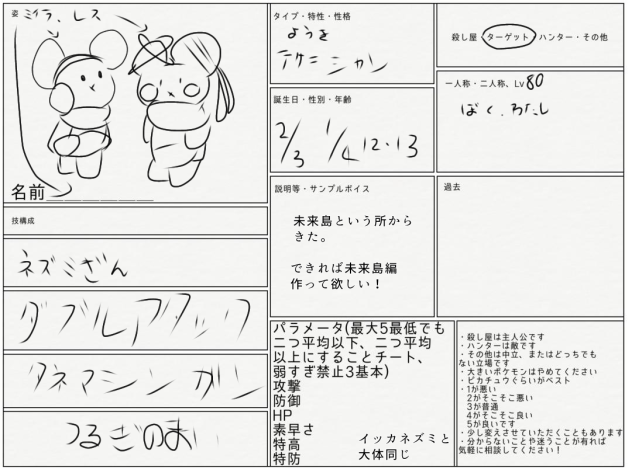 姿 ミイラ、レス
名前＿＿＿＿＿＿
技構成
ネズミざん
ダブルアタック
タネマシンガン
つるぎのまい
タイプ・特性・性格
ようき
テクニシャン
誕生日・性別・年齢
2/3 1/4 12・13
説明等・サンプルボイス
未来島という所から
きた。
できれば未来島編
作って欲しい！
パラメータ(最大5最低でも
二つ平均以下、二つ平均
以上にすることチート、
弱すぎ禁止3基本)
攻撃
防御
HP
素早さ
特高
特防
イッカネズミと
大体同じ
殺し屋・ターゲット・ハンター・その他
一人称・二人称、Lv80
ぼく、わたし
過去
・殺し屋は主人公です
・ハンターは敵です
・その他は中立、またはどっちでも
ない立場です
・大きいポケモンはやめてください
・ピカチュウぐらいがベスト
・1が悪い
2がそこそこ悪い
3が普通
4がそこそこ良い
5が良いです
・少し変えさせていただくこともあります
・分からないことや迷うことが有れば
気軽に相談してください！